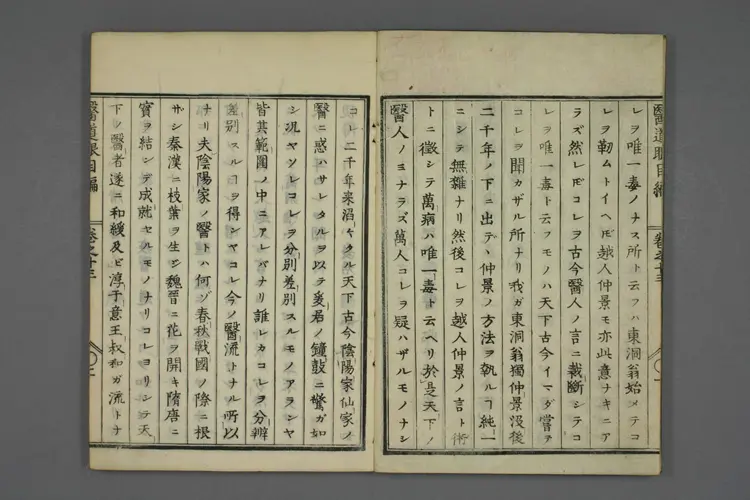 醫道眼目編 卷之十三
レヲ唯一毒ノナス所ト云フハ東洞翁始メテコ
レヲ勒ムトイヘ𪜈越人仲景モ亦此意ナキニア
ラズ然レ𪜈コレヲ古今醫人ノ言ニ裁斷シテコ
レヲ唯一毒ト云フモノハ天下古今イマダ嘗テ
コレヲ聞カザル所ナリ我ガ東洞翁獨仲景沒後
二千年ノ下ニ出デヽ仲景ノ方法ヲ執ルヿ純一
ニシテ無雜ナリ然後コレヲ越人仲景ノ言ト術
トニ徵シテ萬病ハ唯一毒ト云ヘリ於是天下ノ
醫人ノミナラズ萬人コレヲ疑ハザルモノナシ
コレ二千年來滔々タル天下古今陰陽家仙家ノ
醫ニ惑ハサレタルヲ以テ爰君ノ鐘鼓ニ驚ガ如
シ况ヤソレコレヲ分別差別スルモノアランヤ
皆其範圍ノ中ニアレバナリ誰レカコレヲ分辨
差別スルヿヲ得ンヤコレ今ノ醫流トナル所以
ナリ夫陰陽家ノ醫トハ何ゾ春秋戰國ノ際ニ根
ザシ秦漢ニ枝葉ヲ生シ魏晉ニ花ヲ開キ隋唐ニ
實ヲ結ンデ成就セルモノナリコレヨリシテ天
下ノ醫者遂ニ和緩及ビ淳于意王叔和ガ流トナ
醫道眼目編 卷之十三